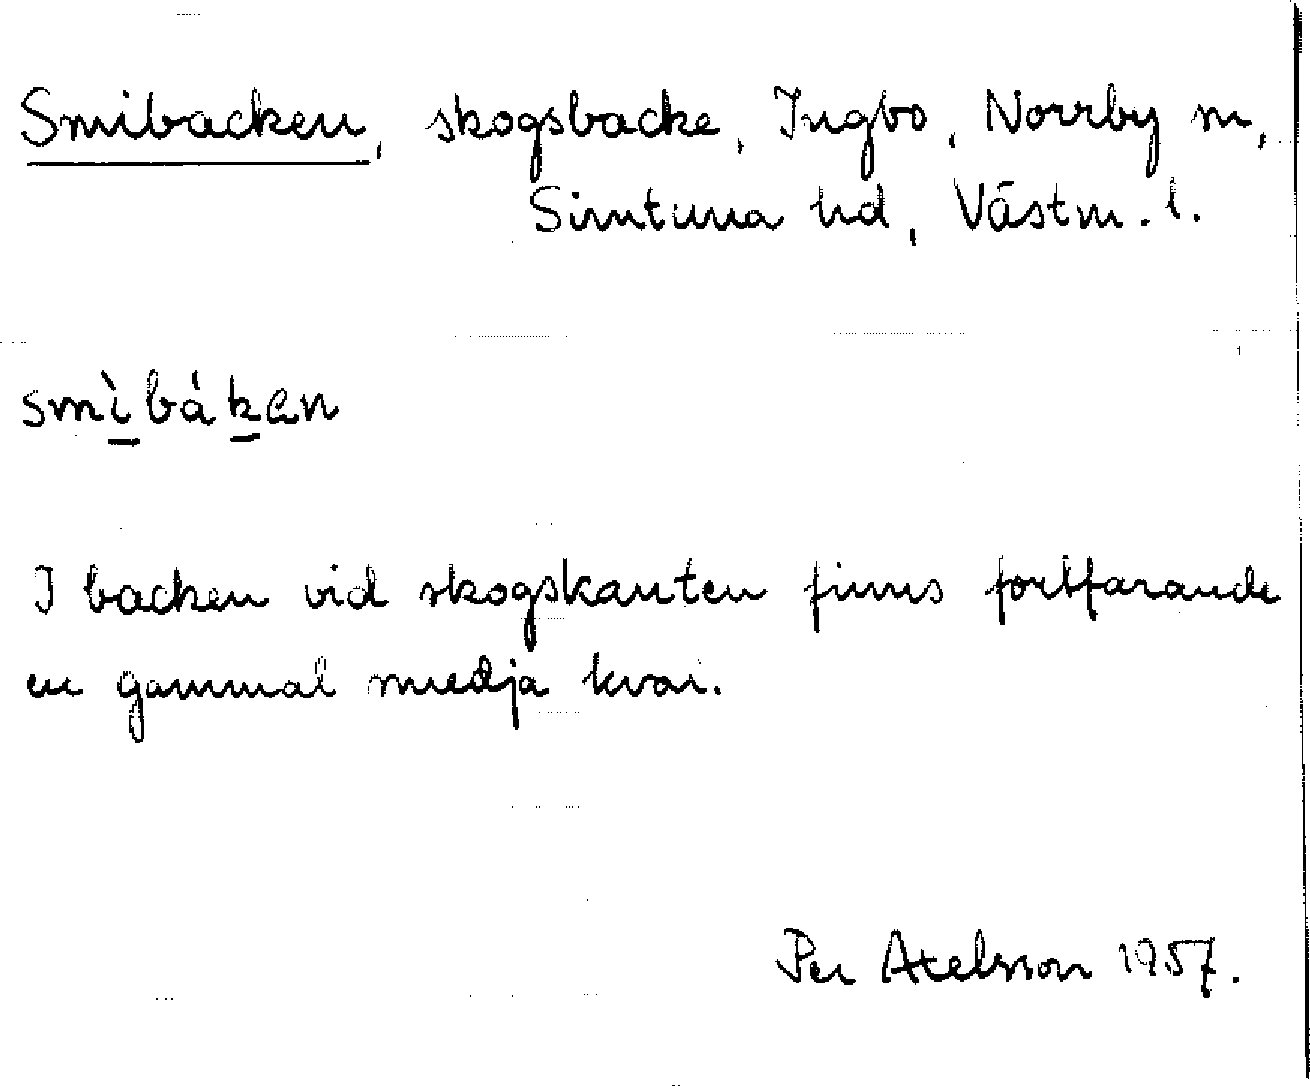 Smibacken, skogsbacke, Ingbo, Norrby sn,
Simtuna hd, Västm. l.
smì̱bák̠en
I backen vid skogskanten finns fortfarande
en gammal smedja kvar.
Per Axelsson 1957.